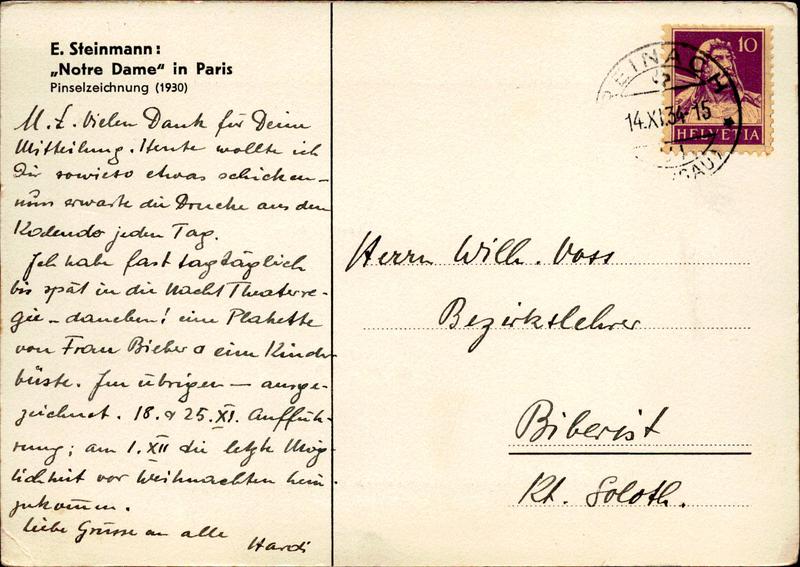 E. Steinmann:
„Notre Dame“ in Paris
Pinselzeichnung (1930)
M. L. Vielen Dank für Deine
Mitteilung. Heute wollte ich
Dir sowieso etwas schicken –
nun erwarte die Drucke aus dem
jeden Tag.
Ich habe fast tagtäglich
bis spät in die Nacht Theaterre-
gie – daneben! eine Plakette
von Frau Bieber & eine Kinder-
büste. Im übrigen – ausge-
zeichnet. 18. & 25. XI. Auffüh-
rung; am 1. XII die letzte Mög-
lichkeit vor Weihnachten heim-
zukommen.
Liebe Grüsse an alle
Hardi
10
HELVETIA
REINACH
14.XI.34-15
Herrn Wilh. Voss
Bezirkslehrer
Biberist
Kt. Soloth.